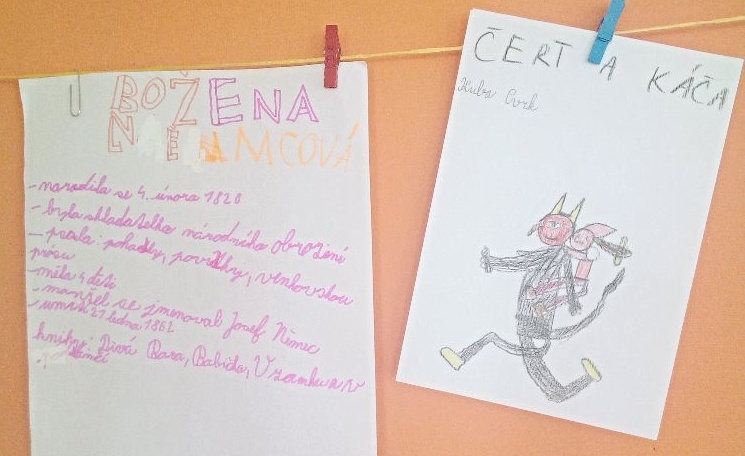 BOŽENA
NĚMCOVÁ
-narodila se 4. února 1820
-byla skladatelko národního obrození
-psala: pohadky, povídky, venkovskou
prósu
-měla 4 děti
-manžel se jmenoval Josef Němec
-umřela 21 ledna 1862
knihy: Divá Bara, Babička, V zámku a v
ČERT A KÁČA
Kuba Cvrk